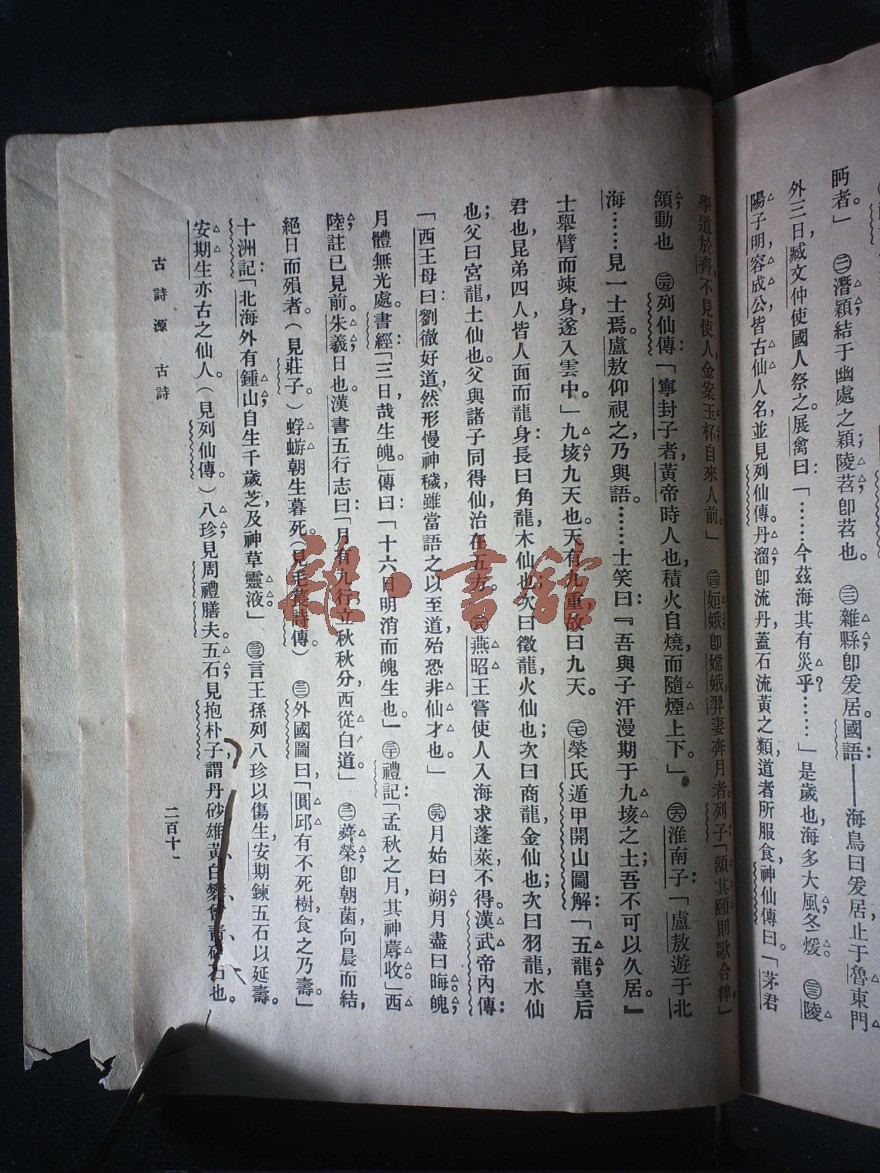 眄者。」㊁潛穎結于幽處之穎陵苕;卽苕也。㊂雜縣卽爰居。國語——海鳥曰爰居止于魯東門
外三日,臧文仲使國人祭之。展禽曰:「……今茲海其有災乎?……」是歲也,海多大風冬煖。陵
陽子明,容成公皆古仙人名,並見列仙傳。丹溜卽流丹,蓋石流黃之類,道者所服食,神仙傳曰:「茅君
學道於齊,不見使人,金案玉杯,自來人前。」姮娥卽嫦娥,羿妻奔月者。列子「頷其頤則歌合律」
頷動也。列仙傳:「寧封子者,黃帝時人也,積火自燒而隨煙上下。」淮南子:「盧敖遊于北
海……見一士焉,盧敖仰視之,乃與語……士笑曰:『吾與子汗漫期于九垓之上,吾不可以久居。』
士舉臂而竦身,遂入雲中。」九垓九天也。天有九重,故曰九天。榮氏遁甲開山圖解:「五龍皇后
君也,昆弟四人,皆人面而龍身。長曰角龍,木仙也;次曰徵龍,火仙也;次曰商龍,金仙也;次曰羽龍,水仙
也;父曰宮龍,土仙也。父與諸子同得仙,治在五方。燕昭王嘗使人入海求蓬萊,不得。漢武帝內傳:
「西王母曰:劉徹好道,然形慢神穢,雖當語之以至道,殆恐非仙才也。」月始曰朔,月盡曰晦。魄,
月體無光處。書經:「三日哉生魄。」傳曰:「十六日明消而魄生也。」禮記:「孟秋之月,其神蓐收。」西
陸註已見前。朱羲,日也。漢書五行志曰:「月有九行,立秋秋分,西從白道。」蕣榮卽朝菌,向晨而結,
絕日而殞者。(見莊子。)蜉蝣,朝生暮死。(見毛萇詩傳)外國圖曰:「圓邱有不死樹,食之乃壽。」
十洲記:「北海外有鍾山,自生千歲芝及神草靈液。」言王孫列八珍以傷生,安期鍊五石以延壽。
安期生亦古之仙人。(見列仙傳。)八珍見周禮膳夫。五石見抱朴子,謂丹砂雄黃白石也。
古詩源 古詩
二百十一
雜·書館